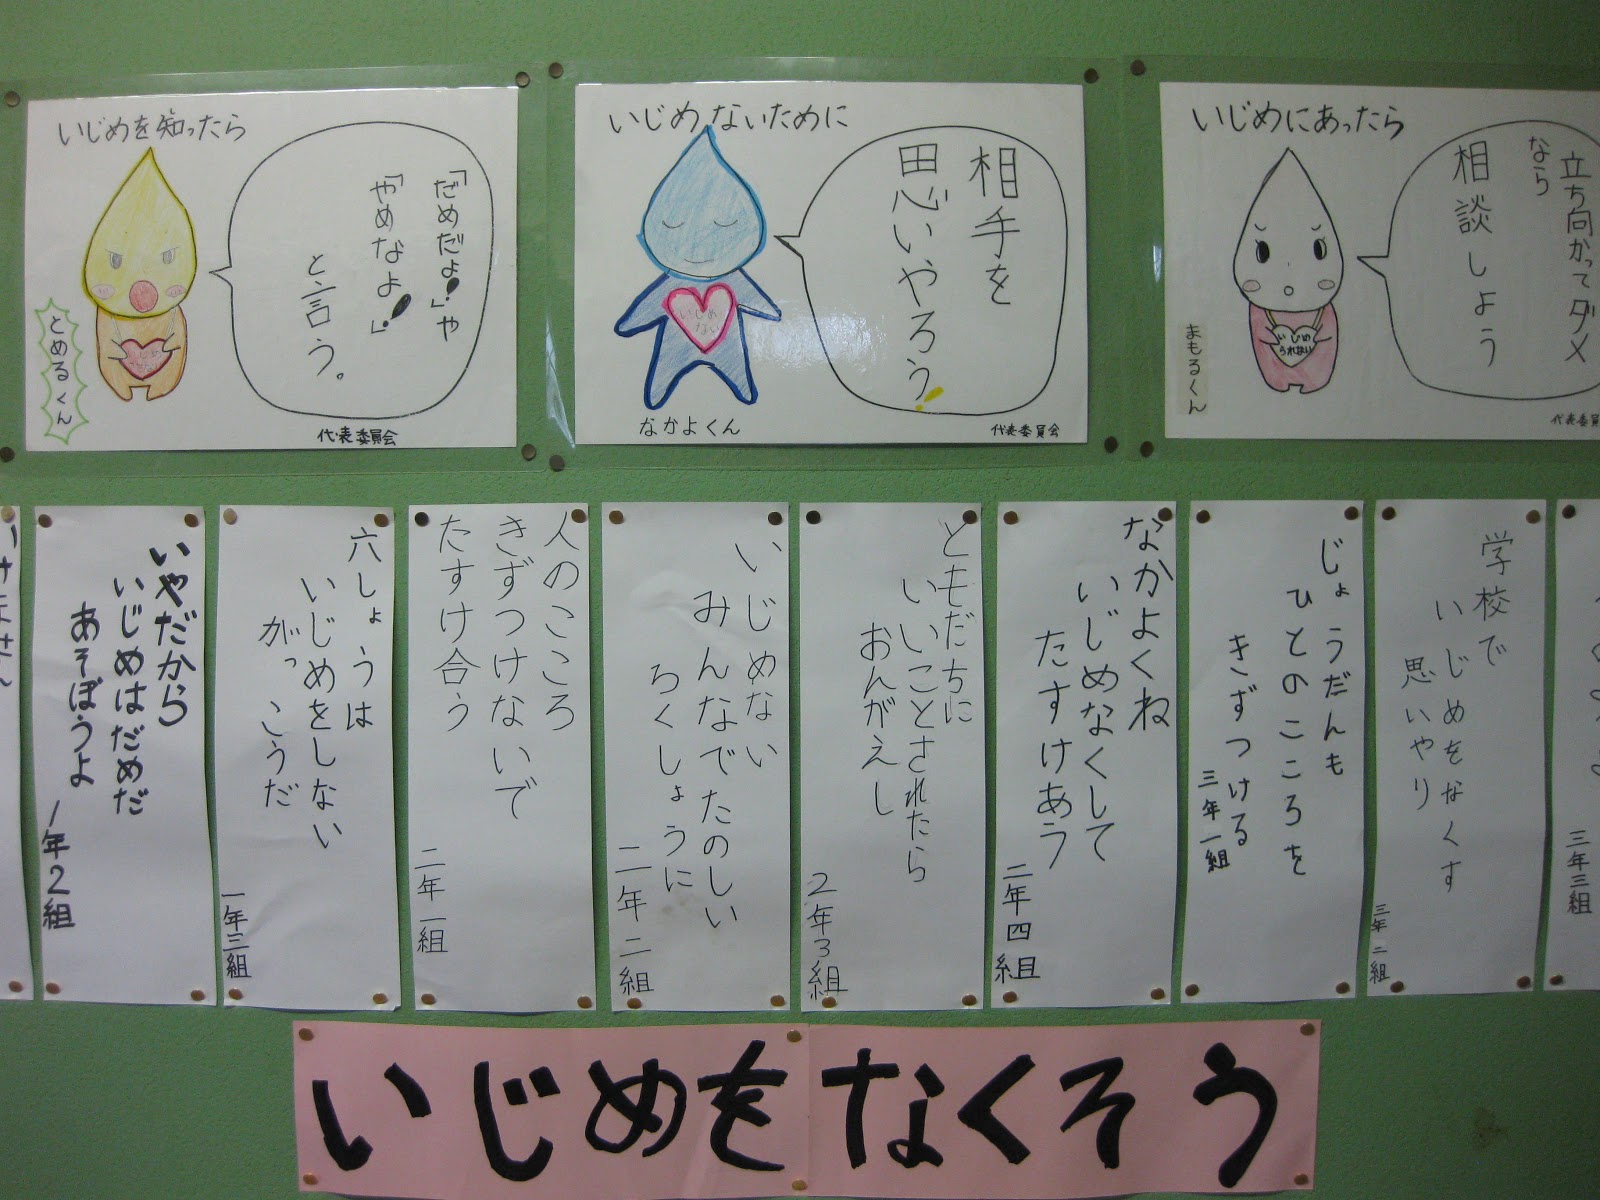 いじめを知ったら
「だめだよ!」や
「やめなよ!」
と言う。
とめるくん
代表委員会
いじめないために
相手を
思いやろう!
いじめ
ない
なかよくん
代表委員会
いじめにあったら
立ち向かってダメ
なら
相談しよう
まもるくん
代表委員
いやだから
いじめはだめだ
あそぼうよ
1年2組
六しょうは
いじめをしない
がっこうだ
一年三組
人のこころ
きずつけないで
たすけ合う
二年一組
いじめない
みんなでたのしい
ろくしょうに
二年二組
ともだちに
いいことされたら
おんがえし
2年3組
なかよくね
いじめなくして
たすけあう
二年四組
じょうだんも
ひとのこころを
きずつける
三年一組
学校で
いじめをなくす
思いやり
三年二組
三年三組
いじめをなくそう